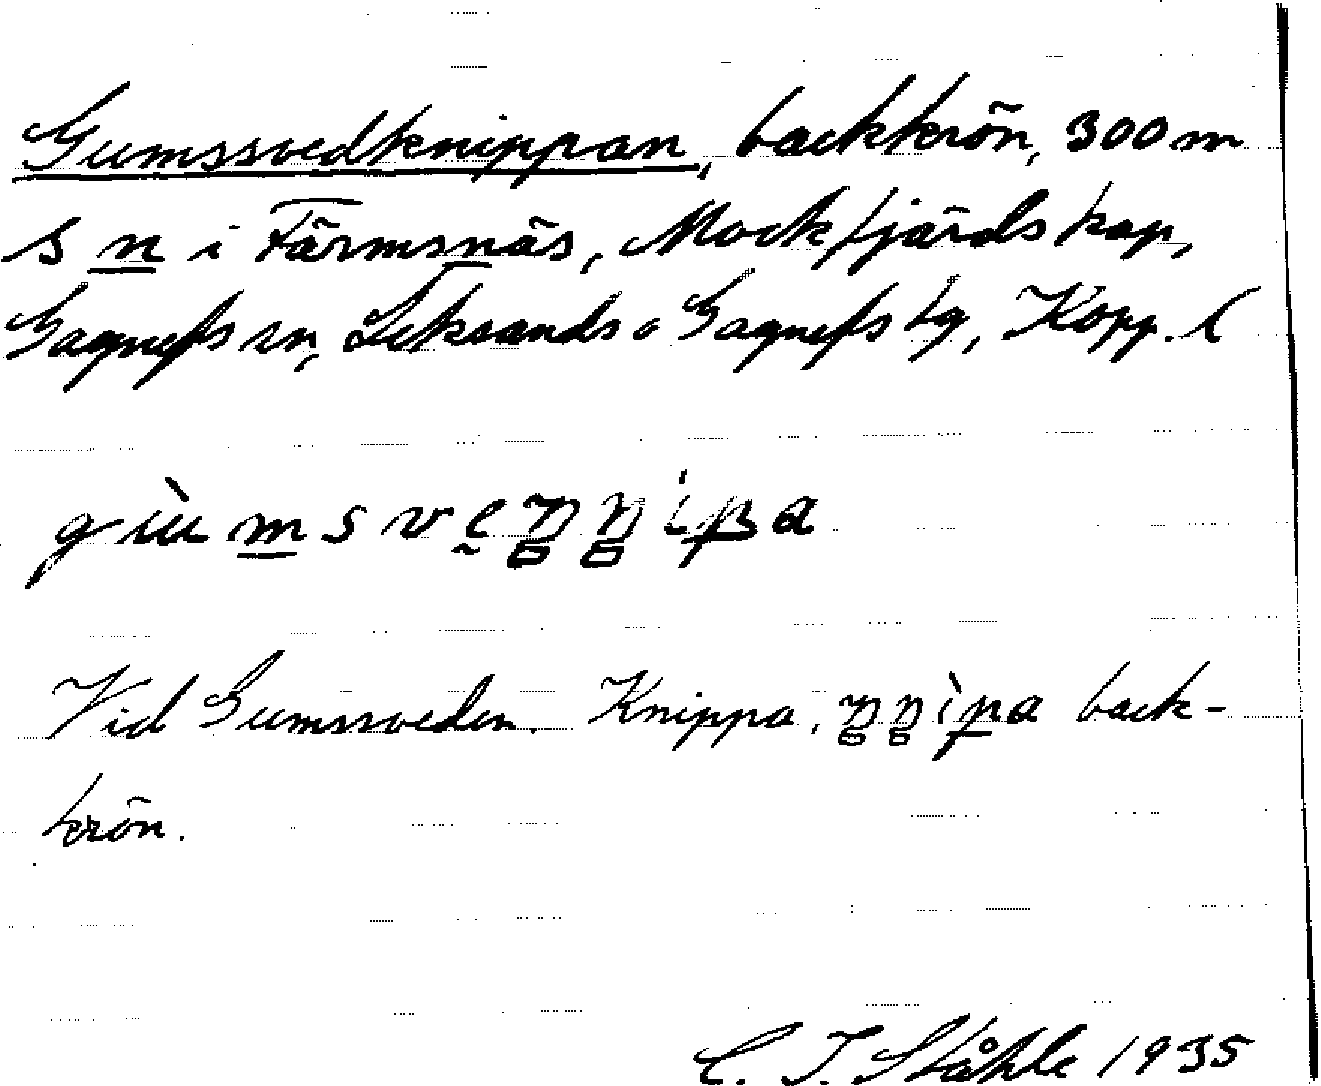 Gumssvedknippan, backkrön, 300 m
S n i Färmsnäs, Mockfjärds kap,
Gagnefs sn, Leksands o Gagnefs tg, Kopp. l
Vid Gumssveden. Knippa, back-
krön.
C. I. Ståhle 1935